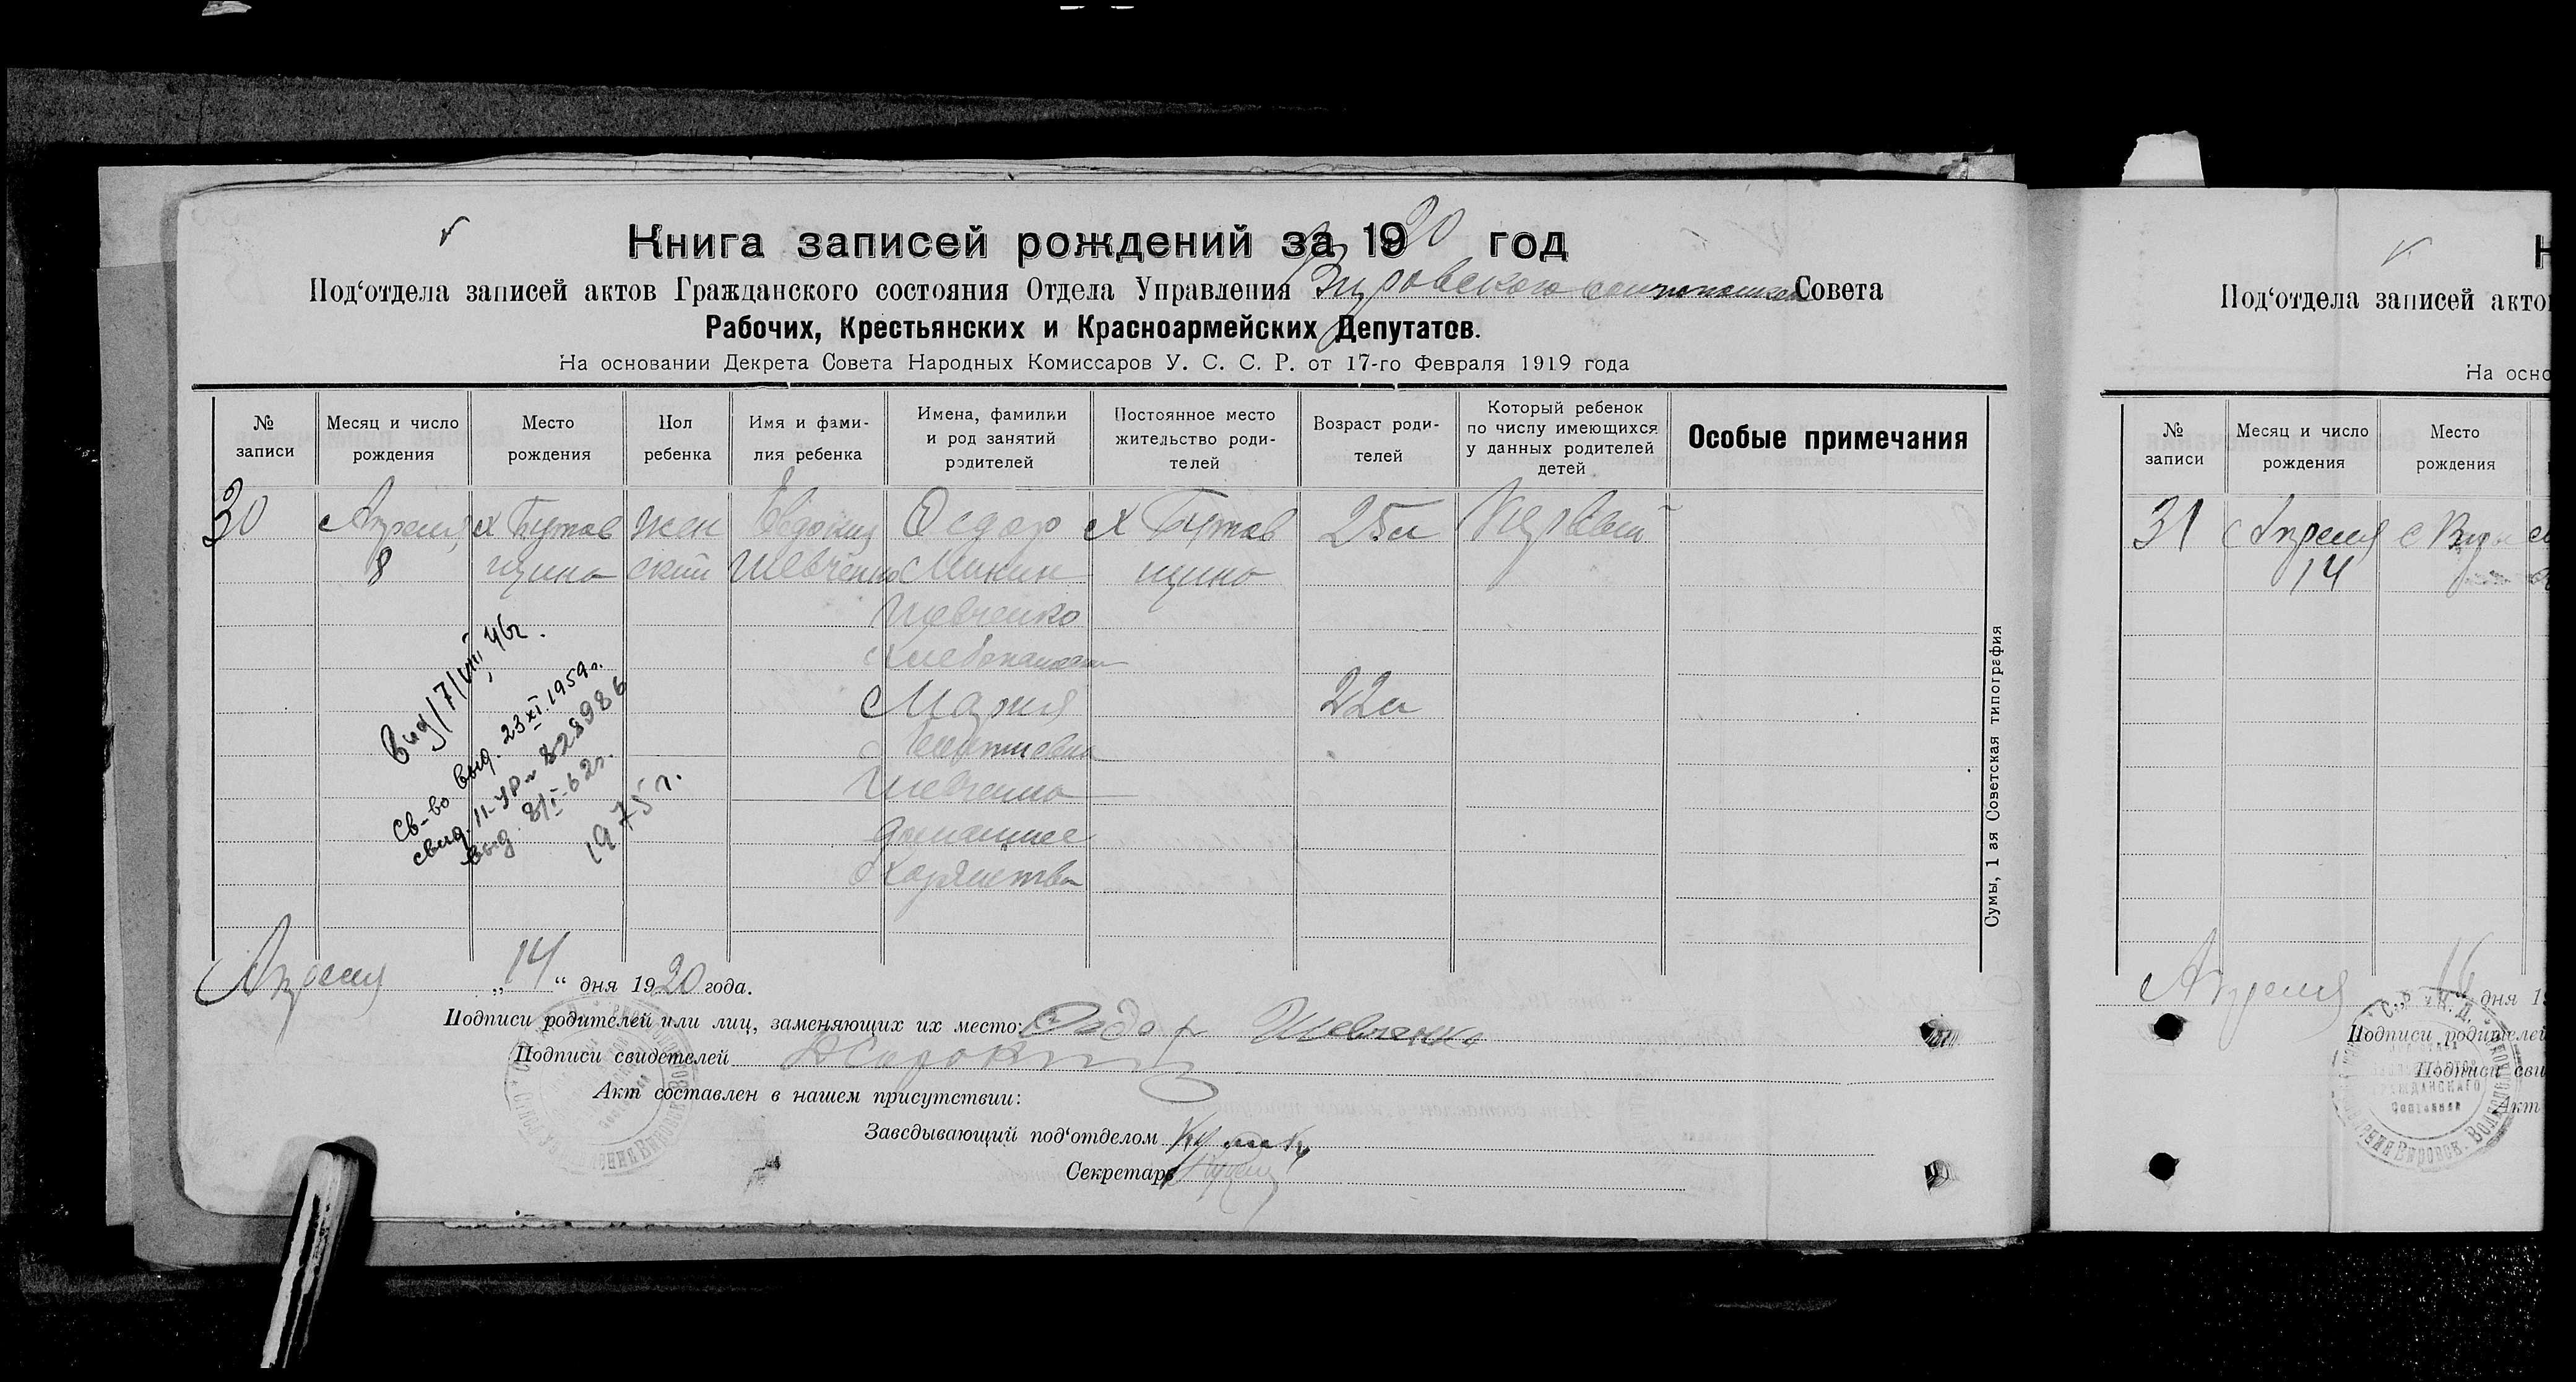 Книга записей рождений за 1920 год
Под‘отдела записей актов Гражданского состояния Отдела Управления Вировского Совета
Рабочих, Крестьянских и Красноармейских Депутатов.
На основании Декрета Совета Народных Комиссаров У. С. С. Р. от 17-го Февраля 1919 года
№ записи
Месяц и число рождения
Место рождения
Пол ребенка
Имя и фамилия ребенка
Имена, фамилии и род занятий родителей
Постоянное место жительство родителей
Возраст родителей
Который ребенок по числу имеющихся у данных родителей детей
Особые примечания
30 Апреля х Бутов жен Евдокия Федор х Бутов 25 л Первый
8 щина ский Шевченко Минин щина
Шевченко
Мария 22 л
Шевченко
домашнее
хозяйство
Вид 17/VIII 46г.
Св-во выд. 23 XI. 1959г.
свид. 11-УР № 828986
выд. 8/I-62г.
1975 г.
Апреля „14“ дня 1920 года.
Подписи родителей или лиц, заменяющих их место: Федор Шевченко
Подписи свидетелей
Акт составлен в нашем присутствии:
Заведывающий под‘отделом
Секретарь
Сумы, 1 ая Советская типография
Под‘отдела записей акто
На осно
№ записи
Месяц и число рождения
Место рождения
31 Апреля с Виры
14
Апреля 16 дня 1
Подписи родителей
Подписи сви
Акт